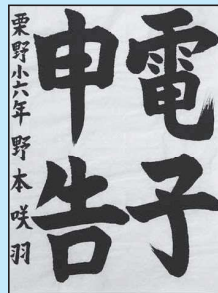 電子
申告
栗野小六年 野本咲羽